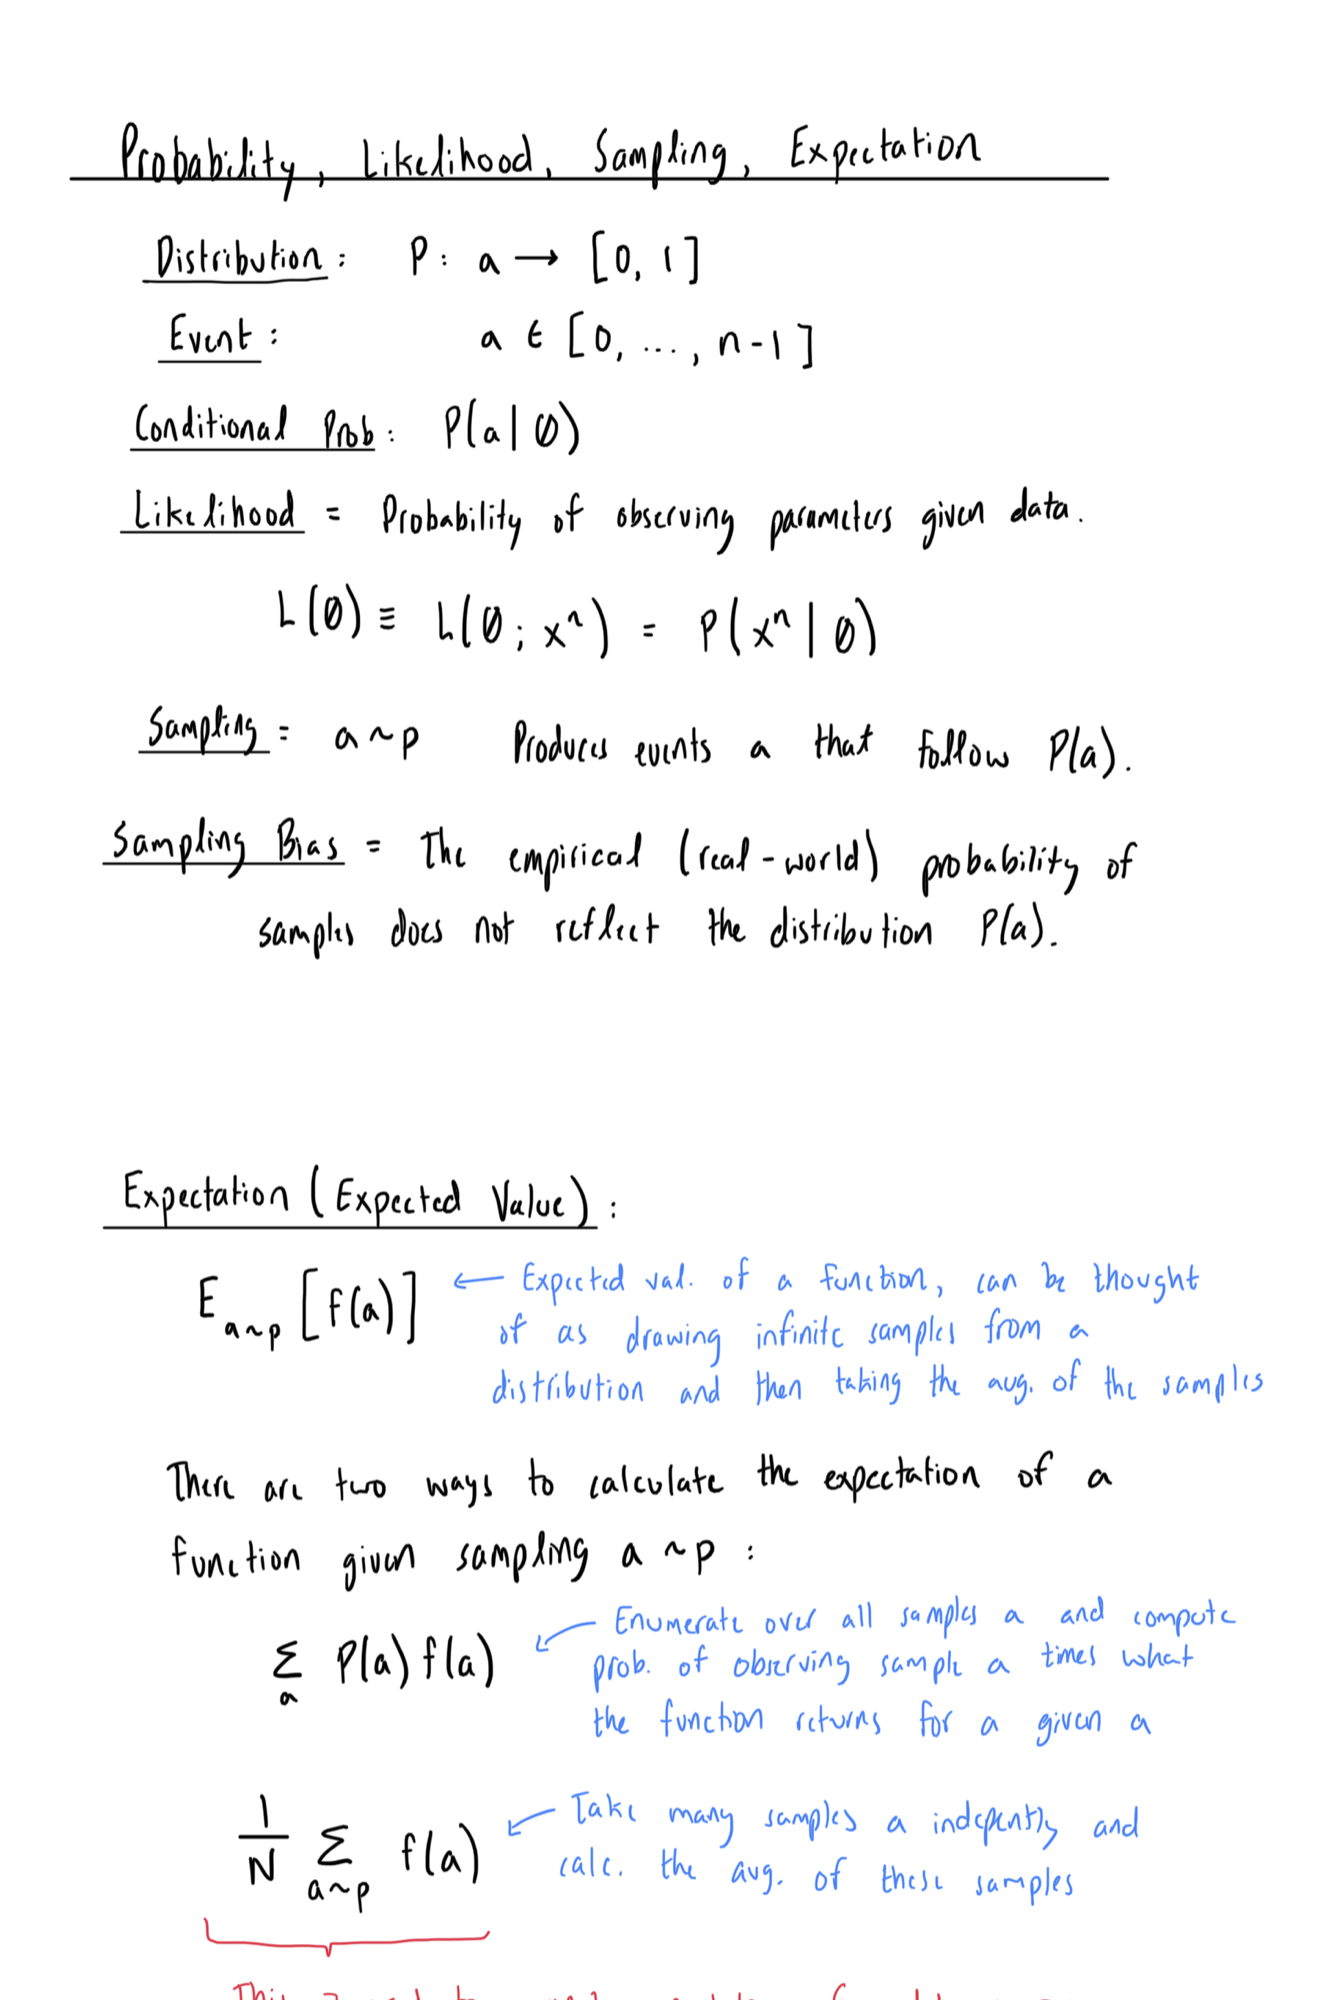 Probability, Likelihood, Sampling, Expectation
Distribution: P: a → [0, 1]
Event: a ∈ [0, ..., n-1]
Conditional Prob: P(a | Ø)
Likelihood = Probability of observing parameters given data.
L(Ø) ≡ L(Ø; xⁿ) = P(xⁿ | Ø)
Sampling = a ~ p Produces events a that follow P(a).
Sampling Bias = The empirical (real-world) probability of
samples does not reflect the distribution P(a).
Expectation (Expected Value):
E a~p [f(a)] ← Expected val. of a function, can be thought
of as drawing infinite samples from a
distribution and then taking the avg. of the samples
There are two ways to calculate the expectation of a
function given sampling a ~ p :
Σ a P(a) f(a) ← Enumerate over all samples a and compute
prob. of observing sample a times what
the function returns for a given a
1/N Σ a~p f(a) ← Take many samples a indepently and
calc. the avg. of these samples
This